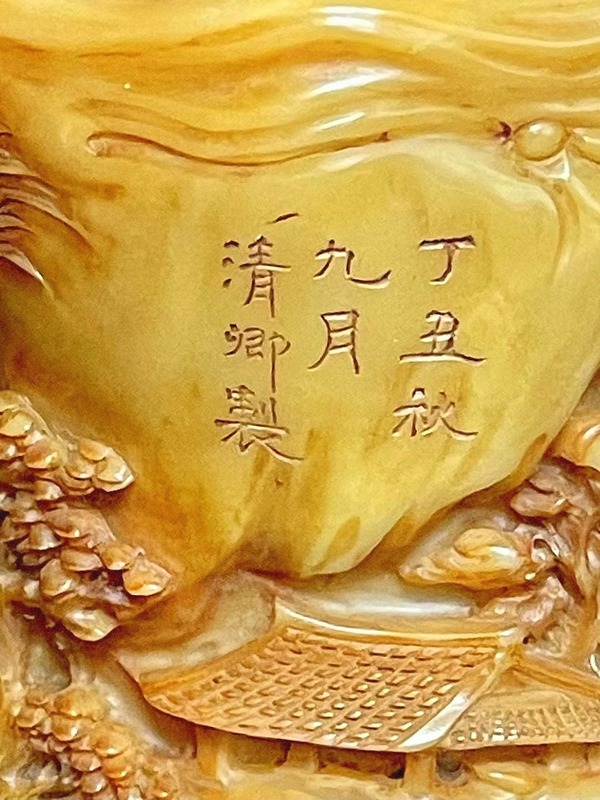 丁丑秋
九月
清卿製